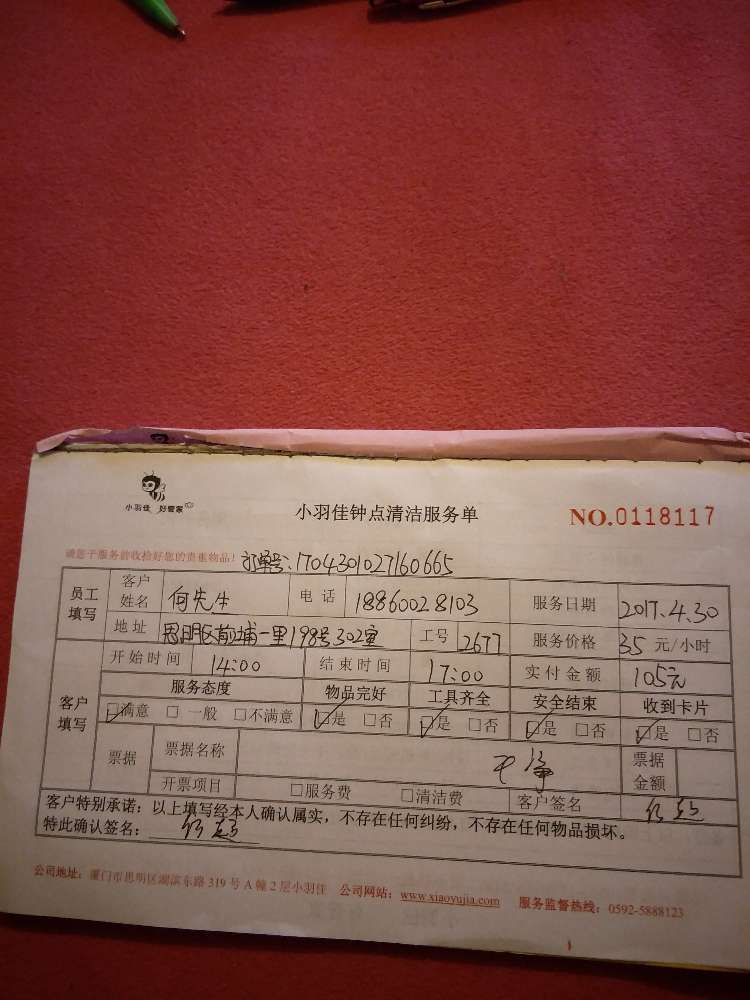 小羽佳 好管家
小羽佳钟点清洁服务单 NO.0118117
请您于服务前收检好您的贵重物品! 订单号:1704301027160665
员工填写 客户姓名 何先生 电话 18860028103 服务日期 2017.4.30
地址 思明区前埔一里198号302室 工号 2677 服务价格 35 元/小时
客户填写 开始时间 14:00 结束时间 17:00 实付金额 105元
服务态度 物品完好 工具齐全 安全结束 收到卡片
☑满意 □一般 □不满意 ☑是 □否 ☑是 □否 ☑是 □否 ☑是 □否
票据 票据名称 票据金额
开票项目 □服务费 □清洁费 客户签名
客户特别承诺:以上填写经本人确认属实,不存在任何纠纷,不存在任何物品损坏。
特此确认签名:
公司地址:厦门市思明区湖滨东路 319 号 A 幢 2 层小羽佳 公司网站:www.xiaoyujia.com 服务监督热线:0592-5888123